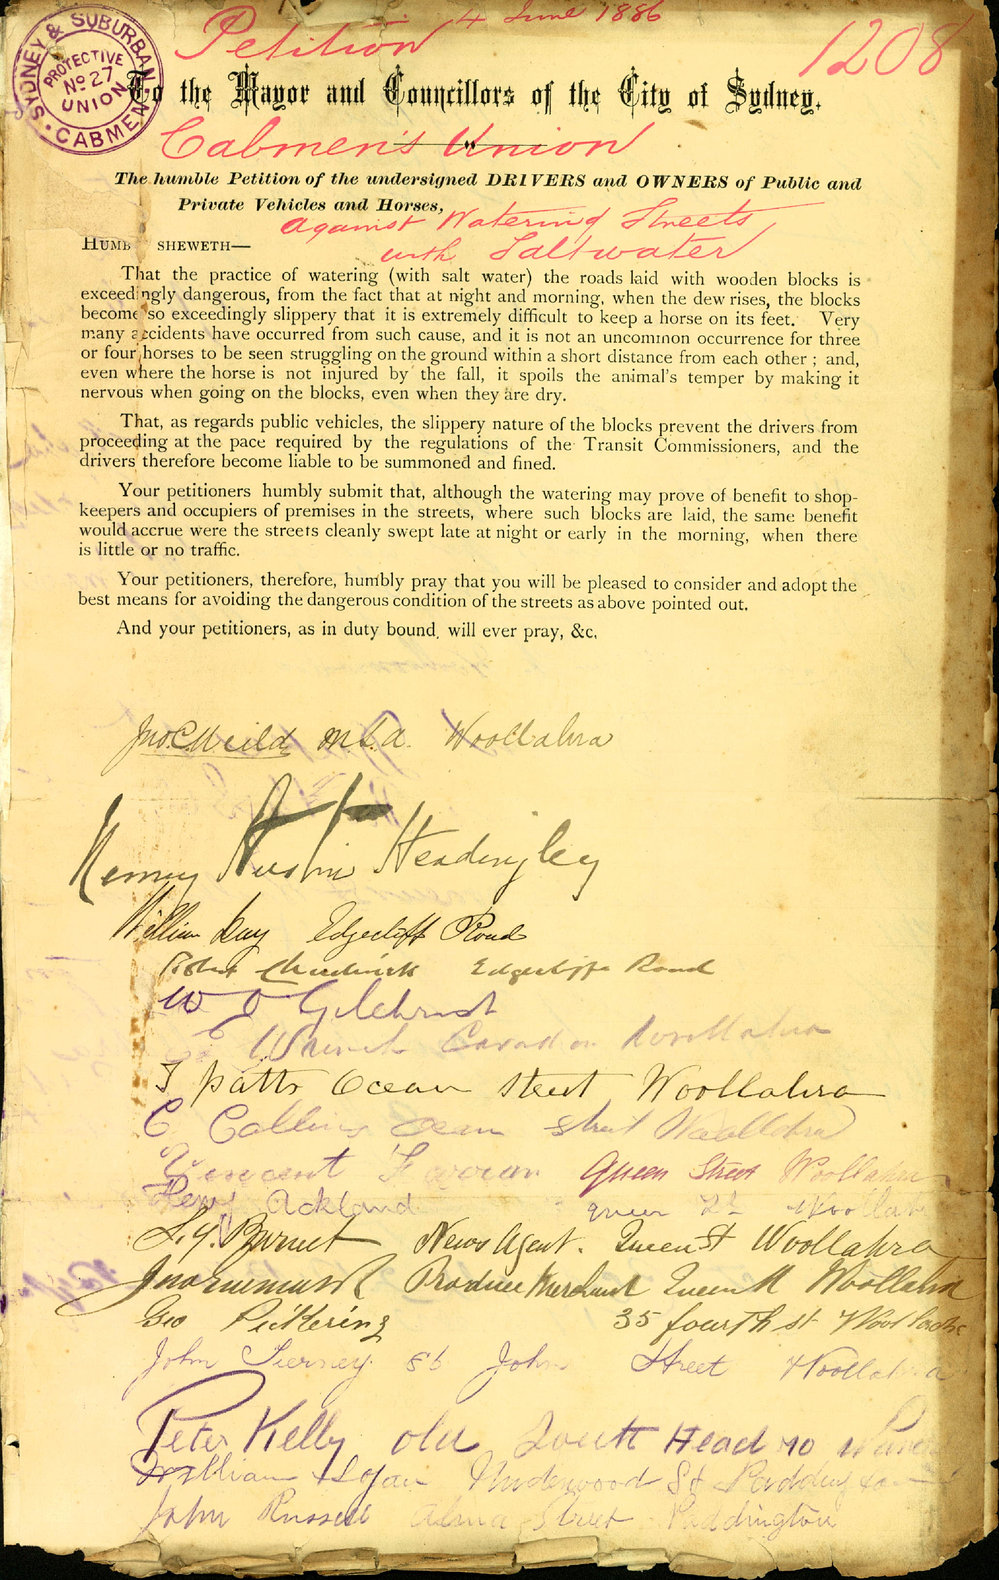 Petition 4 June 1886
1208
SYDNEY & SUBURBAN CABMEN
PROTECTIVE
No 27
UNION
To the Mayor and Councillors of the City of Sydney.
Cabmen's Union
The humble Petition of the undersigned DRIVERS and OWNERS of Public and
Private Vehicles and Horses,
against Watering Streets
with Saltwater
HUMB SHEWETH—
That the practice of watering (with salt water) the roads laid with wooden blocks is
exceedingly dangerous, from the fact that at night and morning, when the dew rises, the blocks
become so exceedingly slippery that it is extremely difficult to keep a horse on its feet. Very
many accidents have occurred from such cause, and it is not an uncommon occurrence for three
or four horses to be seen struggling on the ground within a short distance from each other ; and,
even where the horse is not injured by the fall, it spoils the animal's temper by making it
nervous when going on the blocks, even when they are dry.
That, as regards public vehicles, the slippery nature of the blocks prevent the drivers from
proceeding at the pace required by the regulations of the Transit Commissioners, and the
drivers therefore become liable to be summoned and fined.
Your petitioners humbly submit that, although the watering may prove of benefit to shop-
keepers and occupiers of premises in the streets, where such blocks are laid, the same benefit
would accrue were the streets cleanly swept late at night or early in the morning, when there
is little or no traffic.
Your petitioners, therefore, humbly pray that you will be pleased to consider and adopt the
best means for avoiding the dangerous condition of the streets as above pointed out.
And your petitioners, as in duty bound, will ever pray, &c.
Woollahra
Henry Austin Headingley
William Day Edgecliff Road
Road
W J Gilchrist
Woollahra
J Patts Ocean Street Woollahra
C Collins Ocean Street Woollahra
Vincent Queen Street Woollahra
Henry Ackland Queen St
Burnet News Agent. Queen St Woollahra
Produce Merchant Queen St Woollahra
Geo Pickering 35 fourth st
John Tierney 86 John Street Woollahra
Peter Kelly old South Head
William Logan Underwood St Paddington
John Russell Alma Street Paddington